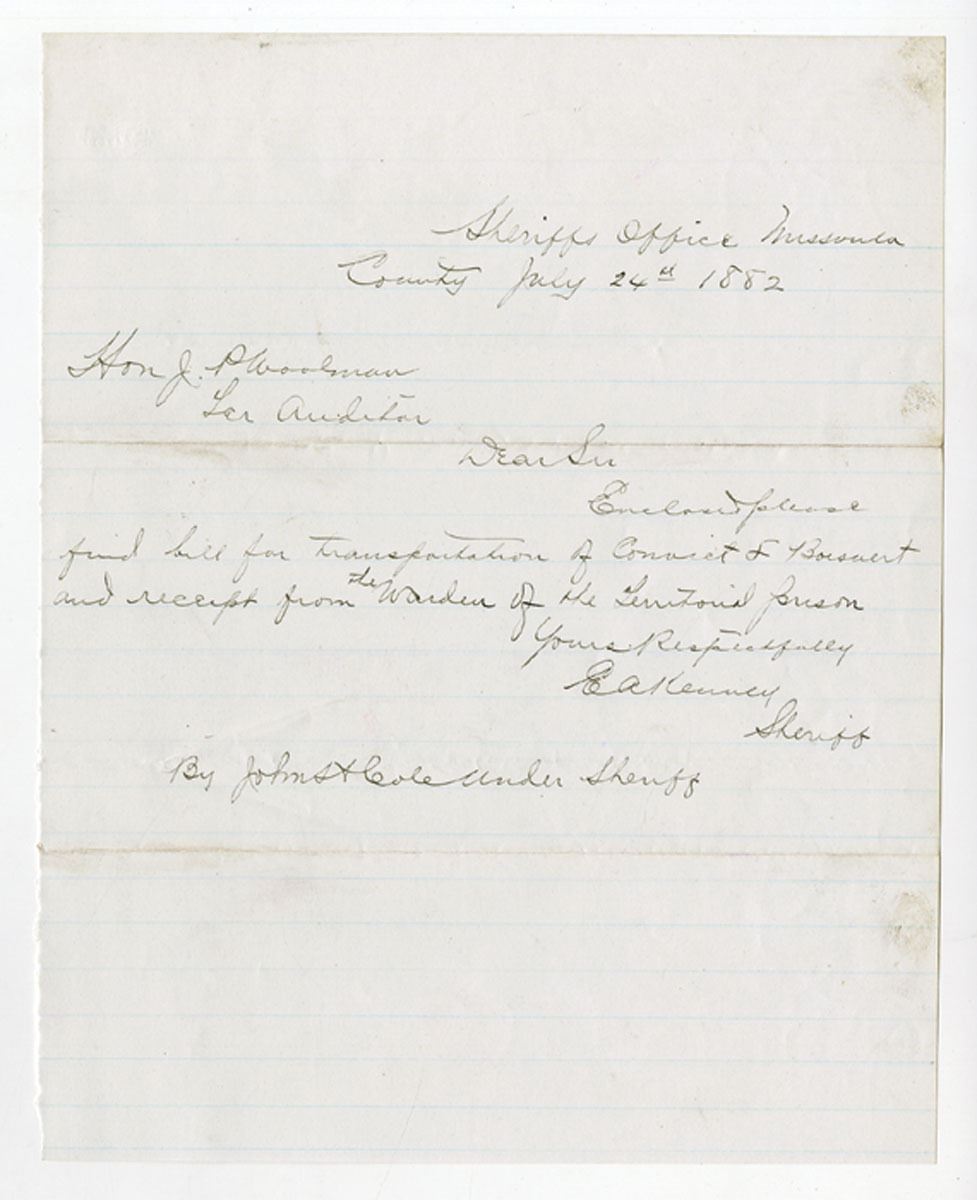 Sheriffs Office Missoula
County July 24th 1882
Hon J. P Woolman
Ter Auditor
Dear Sir
Enclosed please
find bill for transportation of Convict F Boisvert
and receipt from the Warden of the Territorial prison
Yours Respectfully
E A Kenney
Sheriff
By John S H Cole Under Sheriff